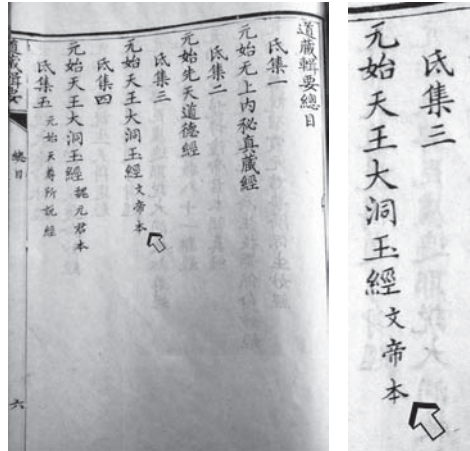 道藏輯要總目
氐集一
元始无上内秘真藏經
氐集二
元始先天道德經
氐集三
元始天王大洞玉經 文帝本
氐集四
元始天王大洞玉經 魏元君本
氐集五 元始天尊所説經
道藏輯要
總目
六
氐集三
元始天王大洞玉經 文帝本